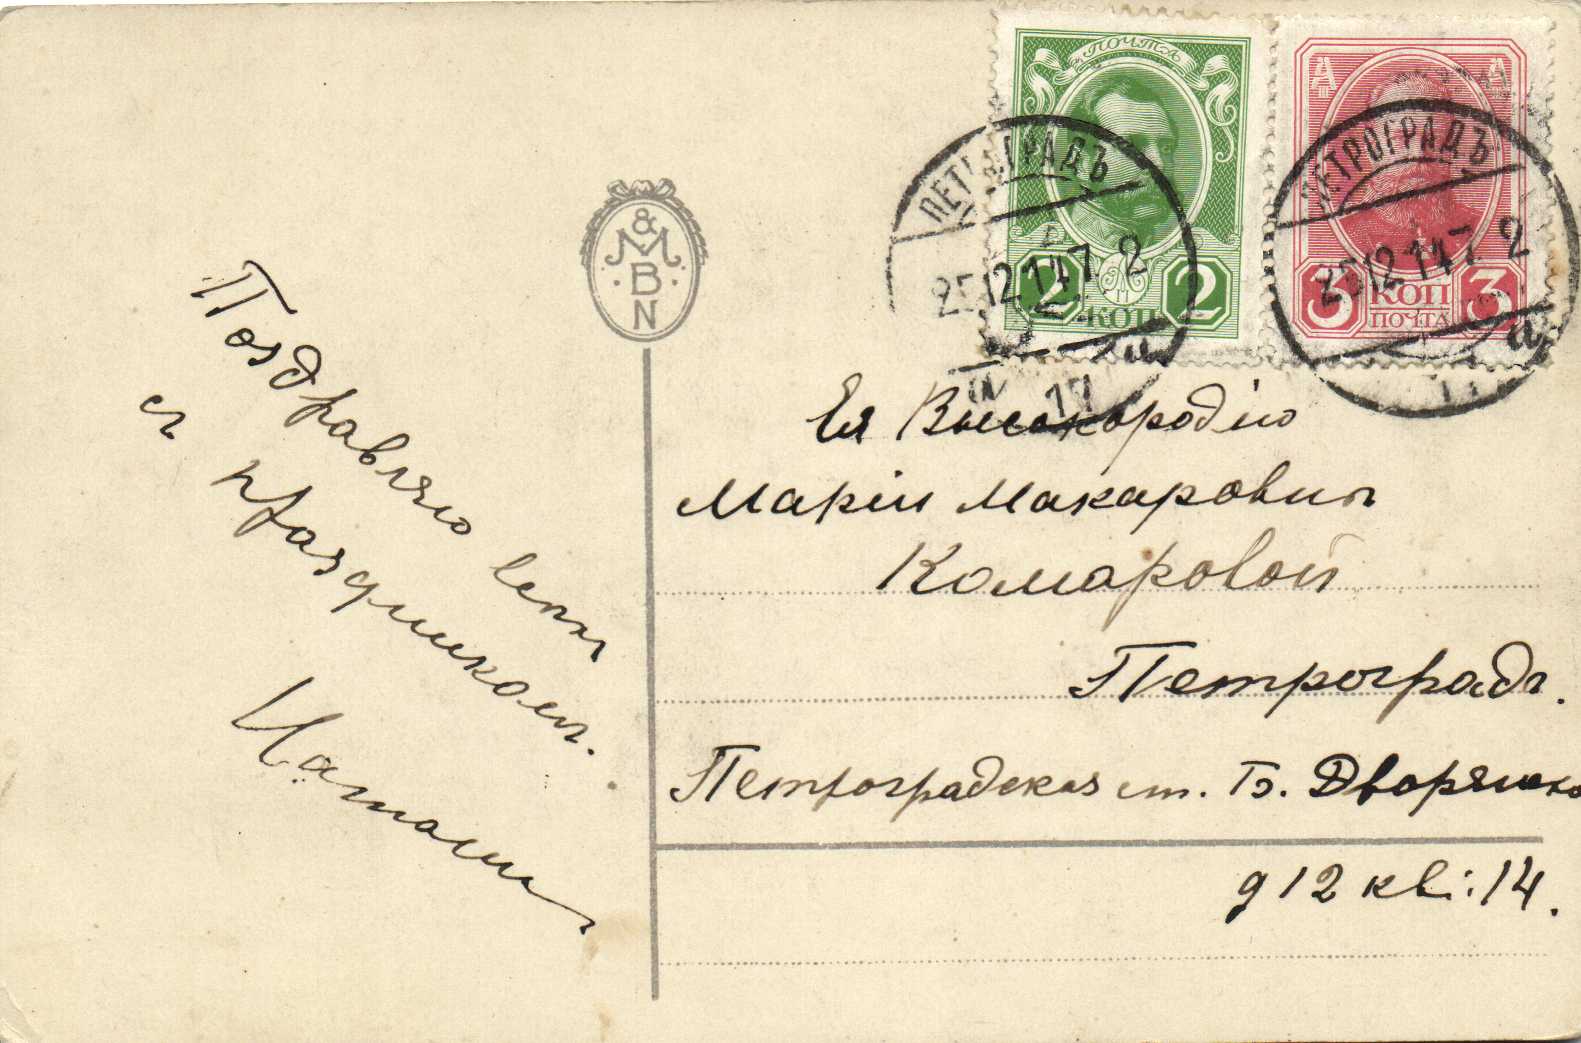 Поздравляю васъ
съ праздникомъ.
ПОЧТА
2 2
КОП
3 КОП 3
ПОЧТА
ПЕТРОГРАДЪ
25 12 14 7. 2
ПЕТРОГРАДЪ
25 12 14 7. 2
а
&
M
B
N
Ея Высокородію
Маріи Макаровнѣ
Комаровой
Петроградъ.
Петроградская ст. Б. Дворянска
д 12 кв: 14.